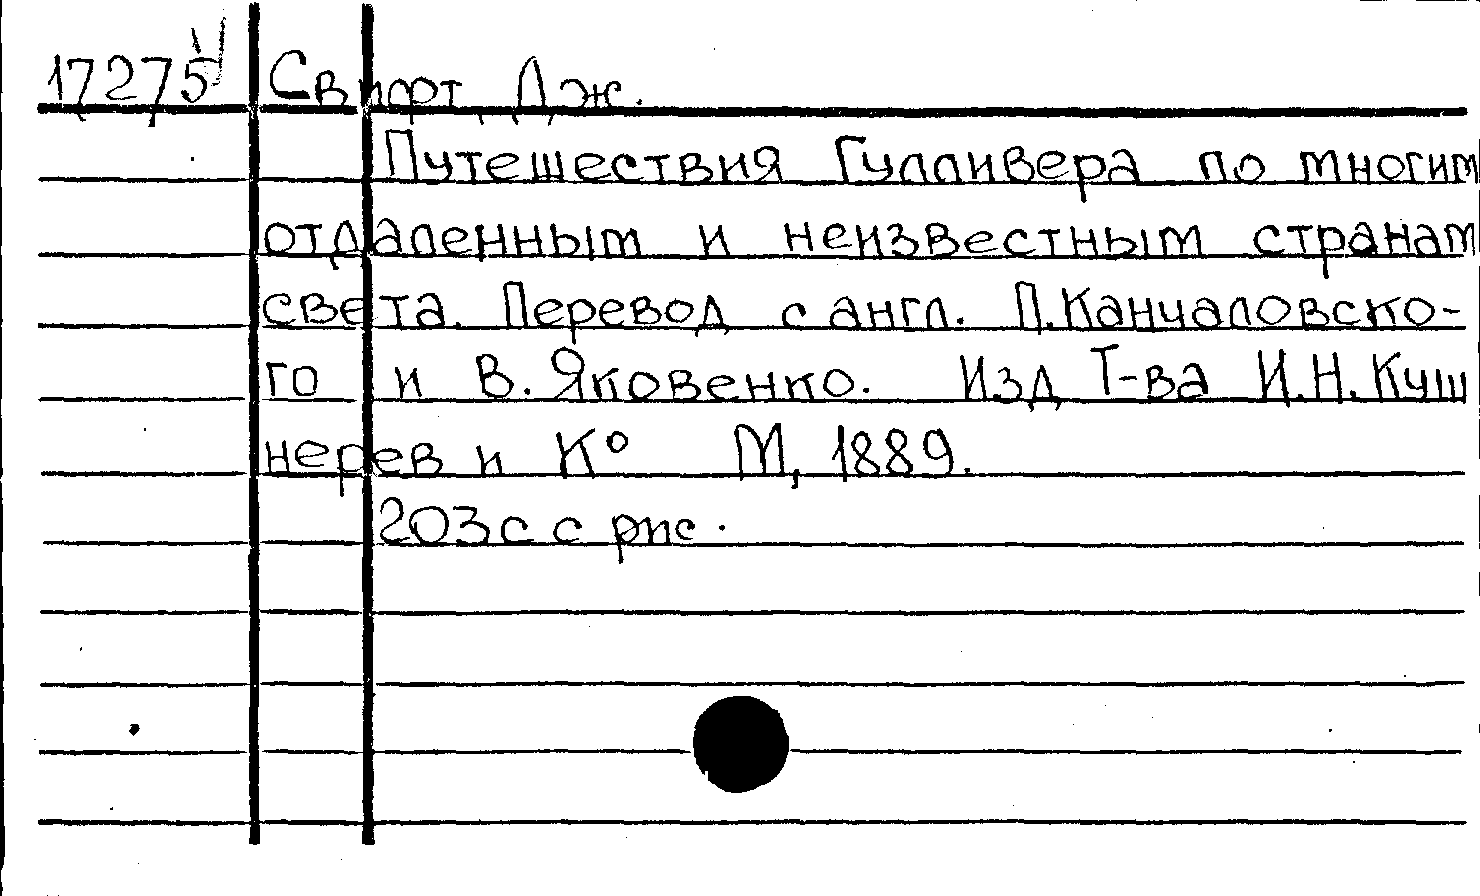 17275 Свифт, Дж.
Путешествия Гулливера по многим
отдаленным и неизвестным странам
света. Перевод с англ. П.Канчаловско-
го и В. Яковенко. Изд Т-ва И.Н.Куш
нерев и К° М, 1889.
203с с рис.